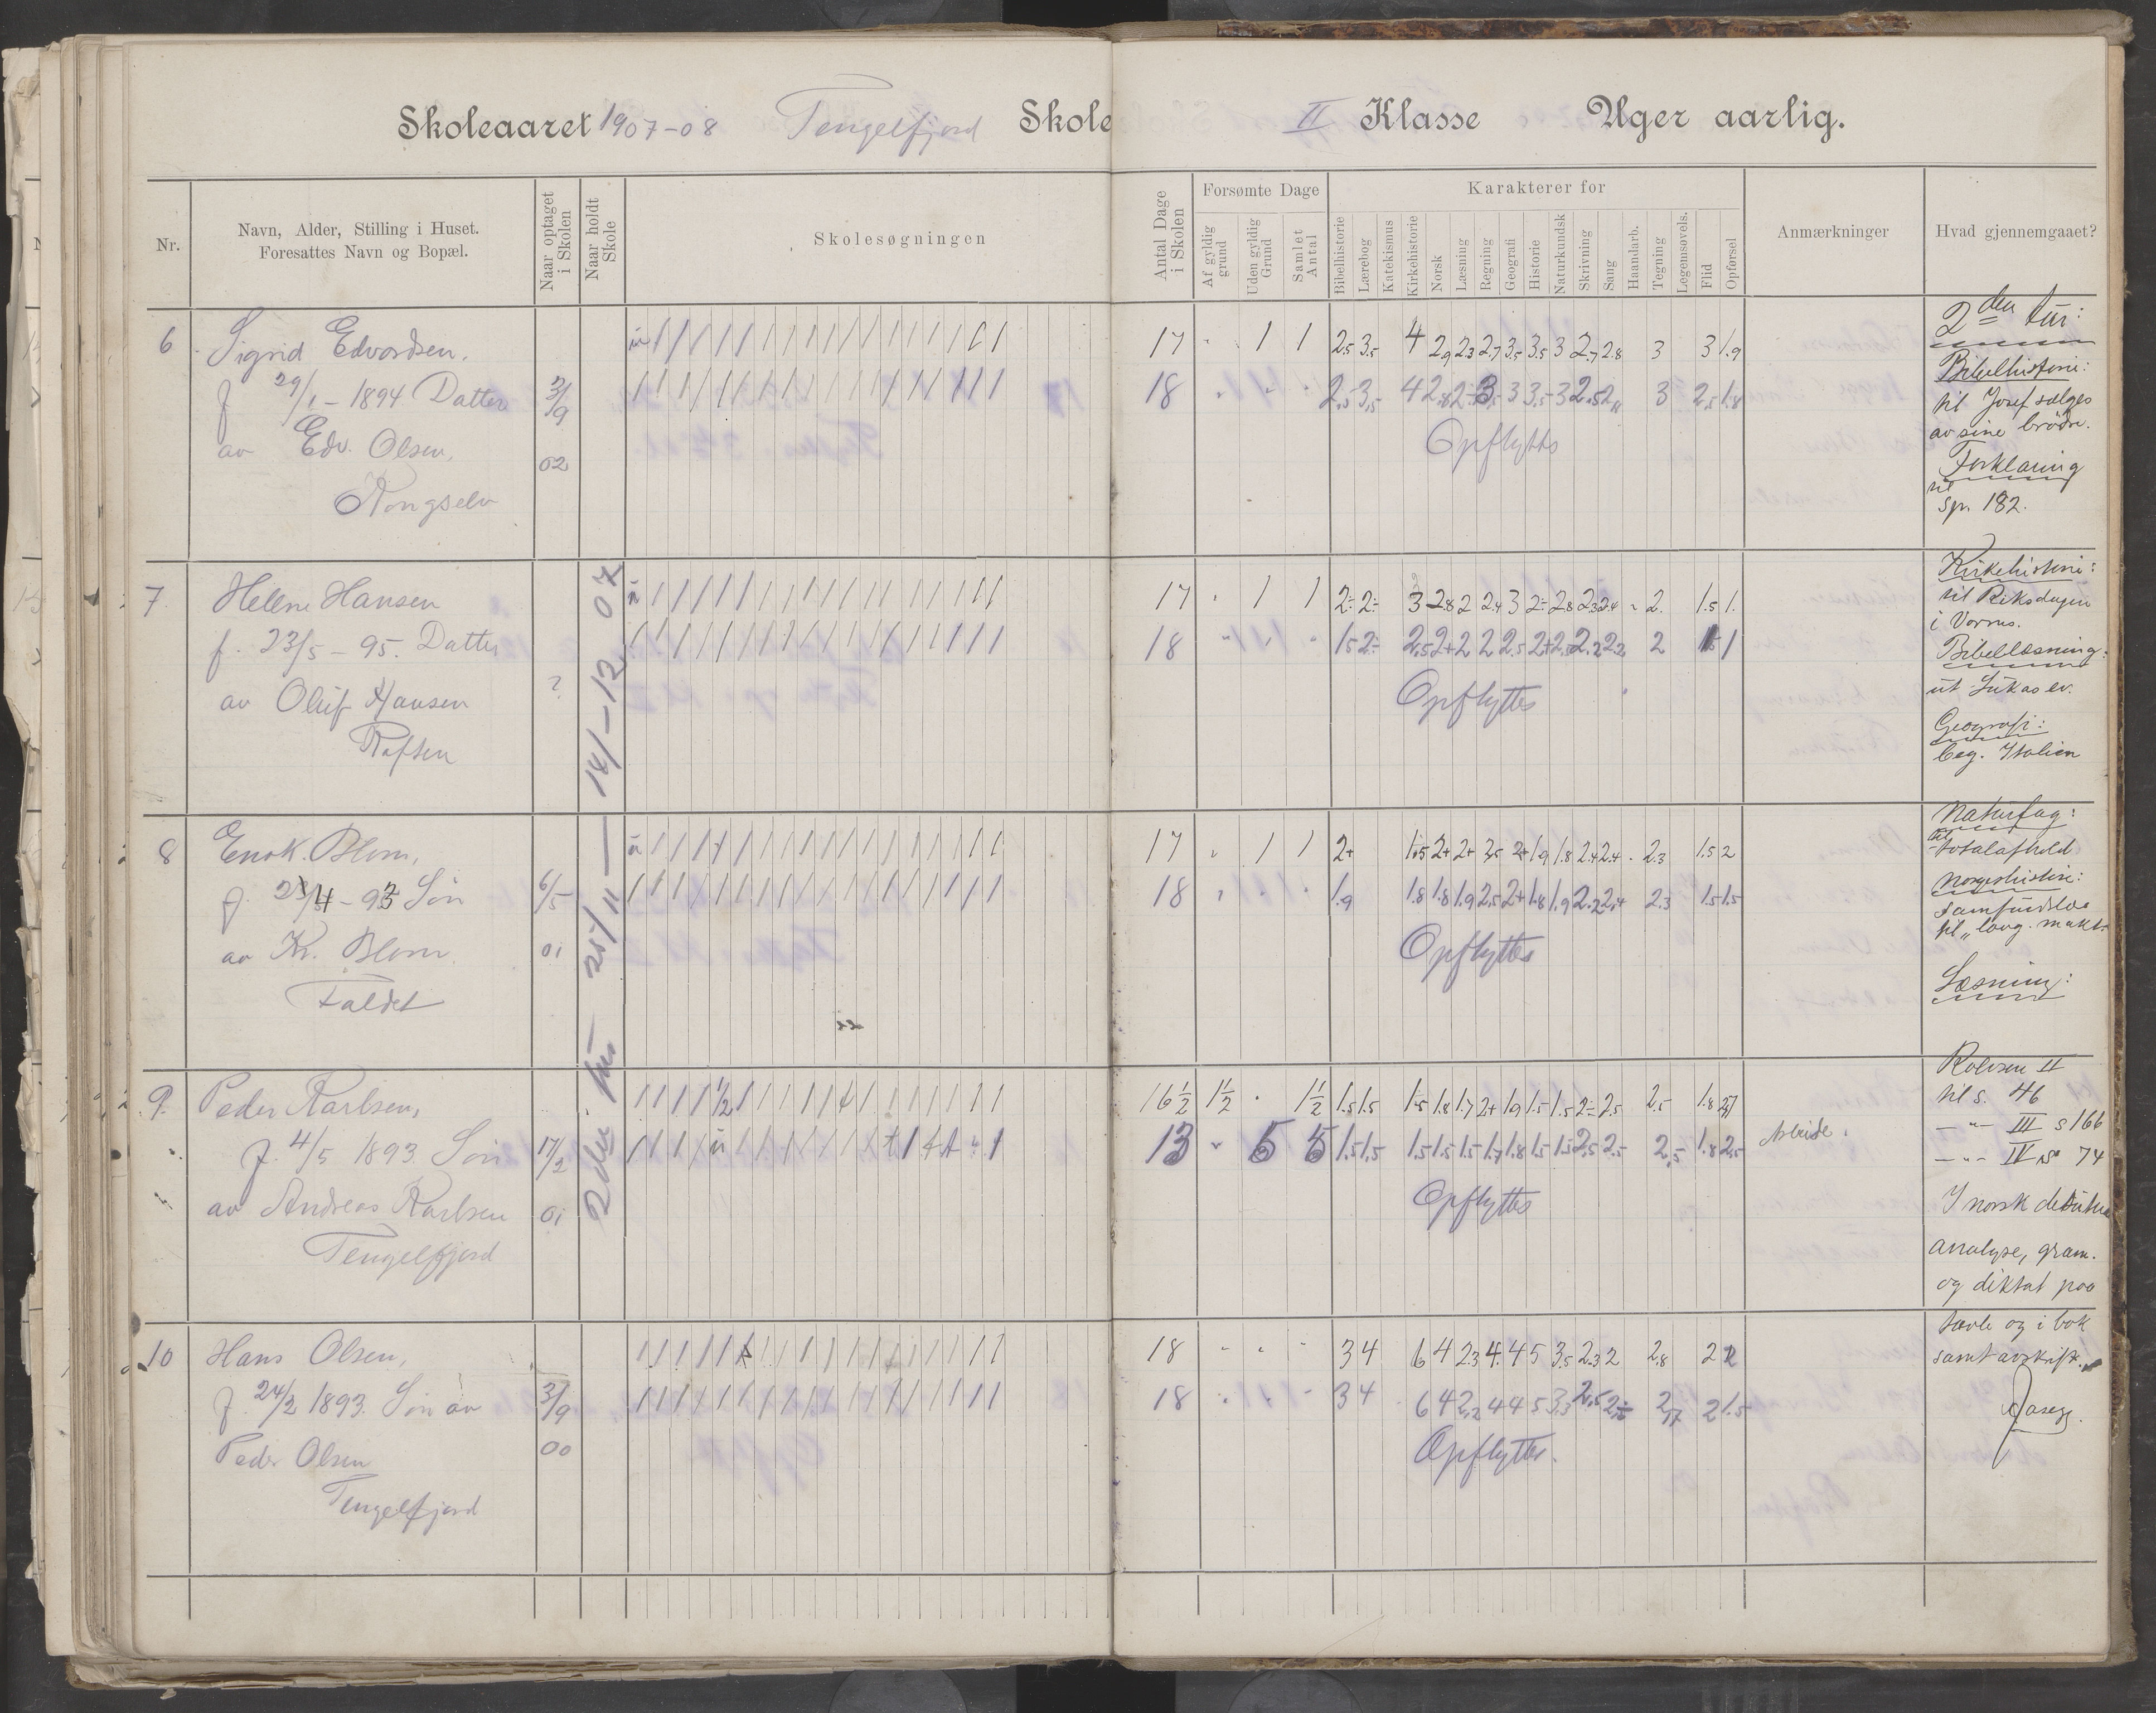 Skoleaaret 1907-08 Tengelfjord Skole II Klasse Uger aarlig.
Nr.
Navn, Alder, Stilling i Huset.
Foresattes Navn og Bopæl.
Naar optaget i Skolen
Naar holdt Skole
Skolesøgningen
Antal Dage i Skolen
Forsømte Dage
Af gyldig grund
Uden gyldig Grund
Samlet Antal
Karakterer for
Bibelhistorie
Lærebog
Katekismus
Kirkehistorie
Norsk
Læsning
Regning
Geografi
Historie
Naturkundsk
Skrivning
Sang
Haandarb.
Tegning
Legemsøvels.
Flid
Opførsel
Anmærkninger
Hvad gjennemgaaet?
2den tur 25/11 — 14/-12 07
6 Sigrid Edvardsen,
f 29/1 - 1894 Datter 3/9
av Edv. Olsen, 02
Kongselv
17 " 1 1 2.5 3.5 4 2.9 2.3 2.7 3.5 3.5 3 2.7 2.8 3 3 1.9
18 " " " 2.5 3.5 4 2.8 2÷ 3.5 3 3.5 3 2.5 3 2.5 1.8
Opflyttes
7 Helene Hansen
f. 23/5 - 95. Datter
av Oluf Hansen ?
Raften
17 " 1 1 2÷ 2÷ 3 2.8 2 2.4 3 2÷ 2.8 2.3 2.4 " 2. 1.5 1.
18 " " " 1.5 2÷ 2.5 2+ 2 2 2.5 2+ 2.5 2.2 2.2 2 1.5 1
Opflyttes
8 Enok. Blom,
f. 23/4 - 93 Søn 6/5
av K. Blom. 01
Faldet
17 " 1 1 2+ 1.5 2+ 2+ 2.5 2+ 1.9 1.8 2.4 2.4 2.3 1.5 2
18 " " " 1.9 1.8 1.8 1.9 2.5 2+ 1.8 1.9 2.2 2.4 2.3 1.5 1.5
Opflyttes
9. Peder Karlsen,
f. 4/5 1893. Søn 17/2
av Andreas Karlsen 01
Tengelfjord
16½ 1½ " 1½ 1.5 1.5 1.5 1.8 1.7 2+ 1.9 1.5 1.5 2÷ 2.5 2.5 1.8 2.7
13 " 5 5 1.5 1.5 1.5 1.5 1.5 1.7 1.8 1.5 1.5 2.5 2.5 2.5 1.8 2.5 Arbeide.
Opflyttes
10 Hans Olsen,
f. 24/2 1893. Søn av 3/9
Peder Olsen 00
Tengelfjord
18 " " " 3 4 6 4 2.3 4. 4 5 3.5 2.3 2 2.8 2 2
18 " " " 3 4 6 4 2.2 4 4 5 3.3 2.5 2÷ 2.7 2 1.5
Opflyttes.
2den tur:
Bibelhistorie:
til Josef sælges
av sine brødre.
Forklaring
til
Sp. 182.
Kirkehistorie:
til Riksdagen
i Vorms.
Bibellæsning:
ut Lukas ev.
Geografi:
beg. Italien
Naturfag:
til
totalafhold
Norgeshistorie:
samfundslæ
til "lovg. makt"
Læsning:
Rolvsen II
til s. 46
— " — III s 166
— " — IV s 74
I norsk desuten
analyse, gram.
og diktat paa
tavle og i bok
samt avskrift.
Aasegg.